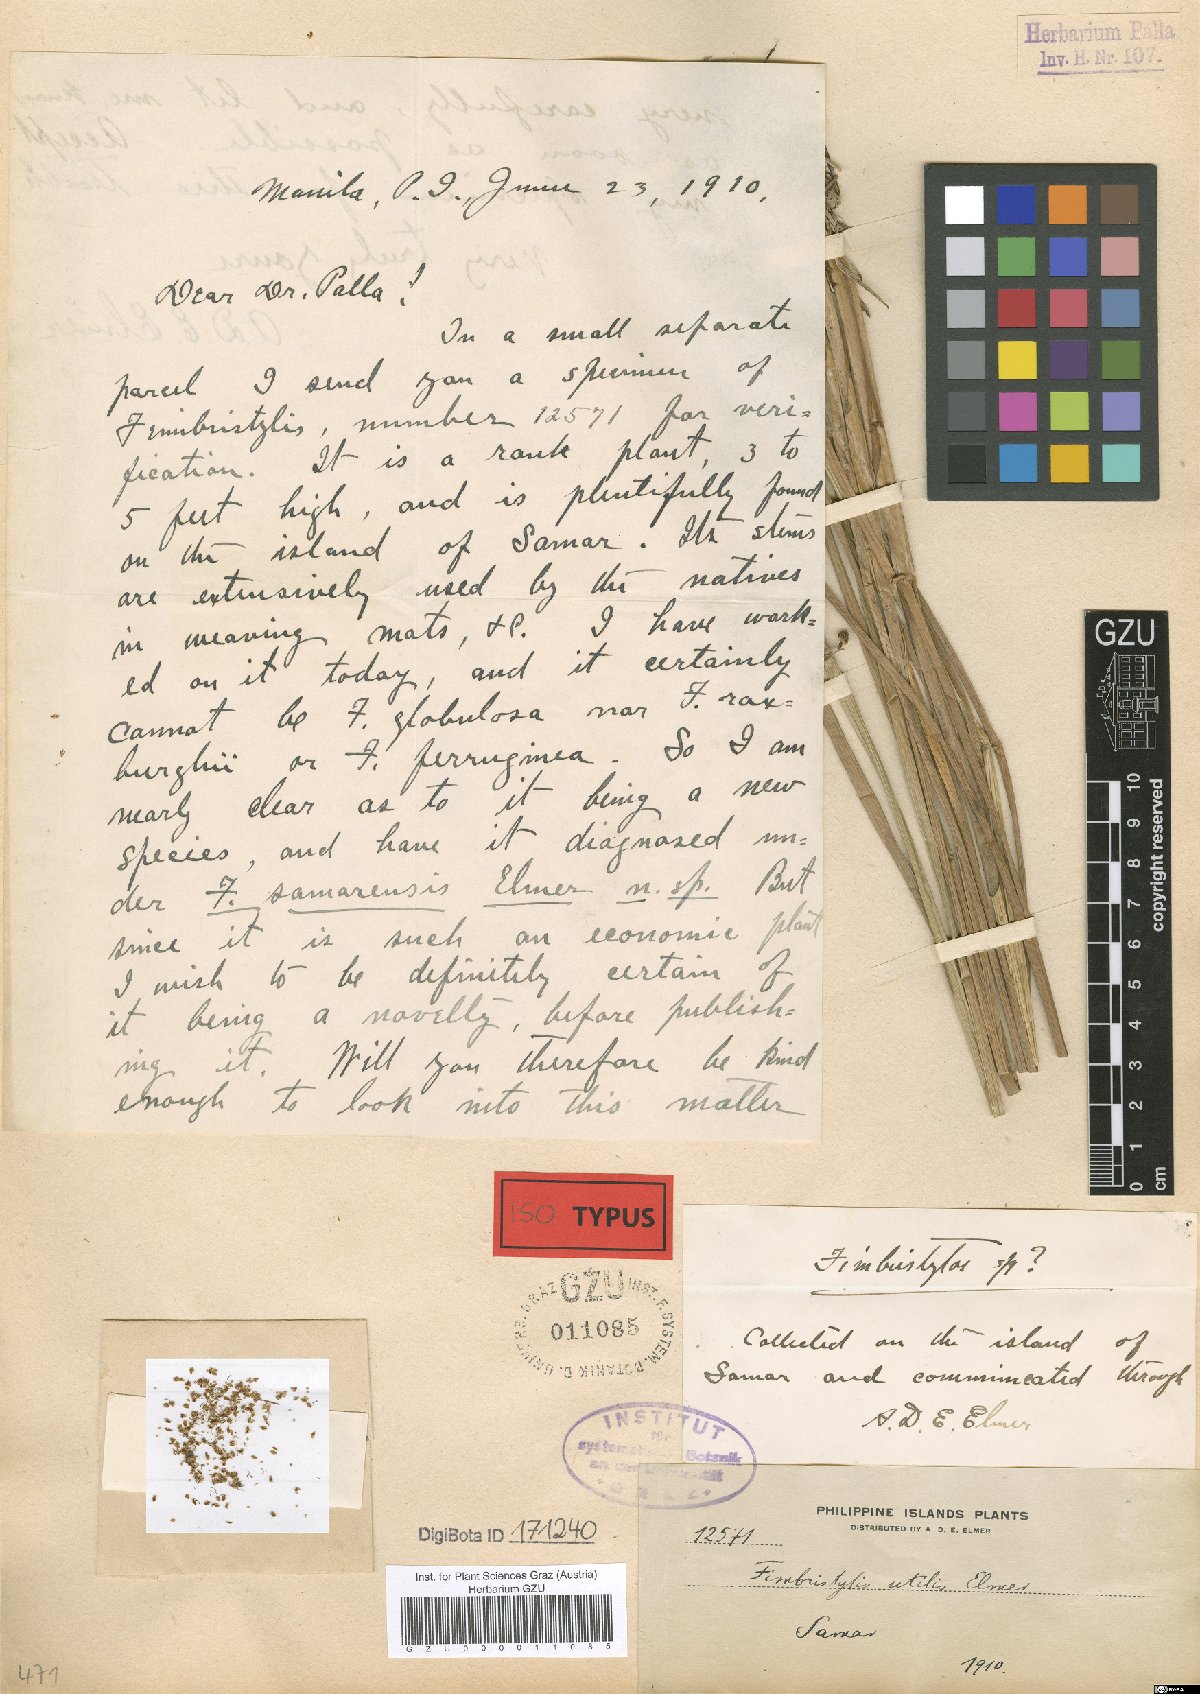 Herbarium Palla
Inv. H. Nr. 107.
Manila, P. I., June 23, 1910.
Dear Dr. Palla!
In a small separate
parcel I send you a specimen of
Fimbristylis, number 12571 for veri=
fication. It is a rank plant, 3 to
5 feet high, and is plentifully found
on the island of Samar. Its stems
are extensively used by the natives
in weaving mats, &c. I have work=
ed on it today, and it certainly
cannot be F. globulosa nor F. rox=
burghii or F. ferruginea. So I am
nearly clear as to it being a new
species, and have it diagnosed un=
der F. samarensis Elmer n. sp. But
since it is such an economic plant
I wish to be definitely certain of
it being a novelty, before publish=
ing it. Will you therefore be kind
enough to look into this matter
GZU
0 1 2 3 4 5 6 7 8 9 10
cm
copyright reserved
ISO TYPUS
GZU
011085
INST. F. SYSTEM. BOTANIK D. UNIV. GRAZ
Fimbristylos sp?
Collected on the island of
Samar and communicated through
A. D. E. Elmer
INSTITUT
für
systematische Botanik
an der Universität
GRAZ
PHILIPPINE ISLANDS PLANTS
DISTRIBUTED BY A. D. E. ELMER
12571
Fimbristylis utilis Elmer
Samar
1910.
DigiBota ID 171240
Inst. for Plant Sciences Graz (Austria)
Herbarium GZU
GZU000011085
471